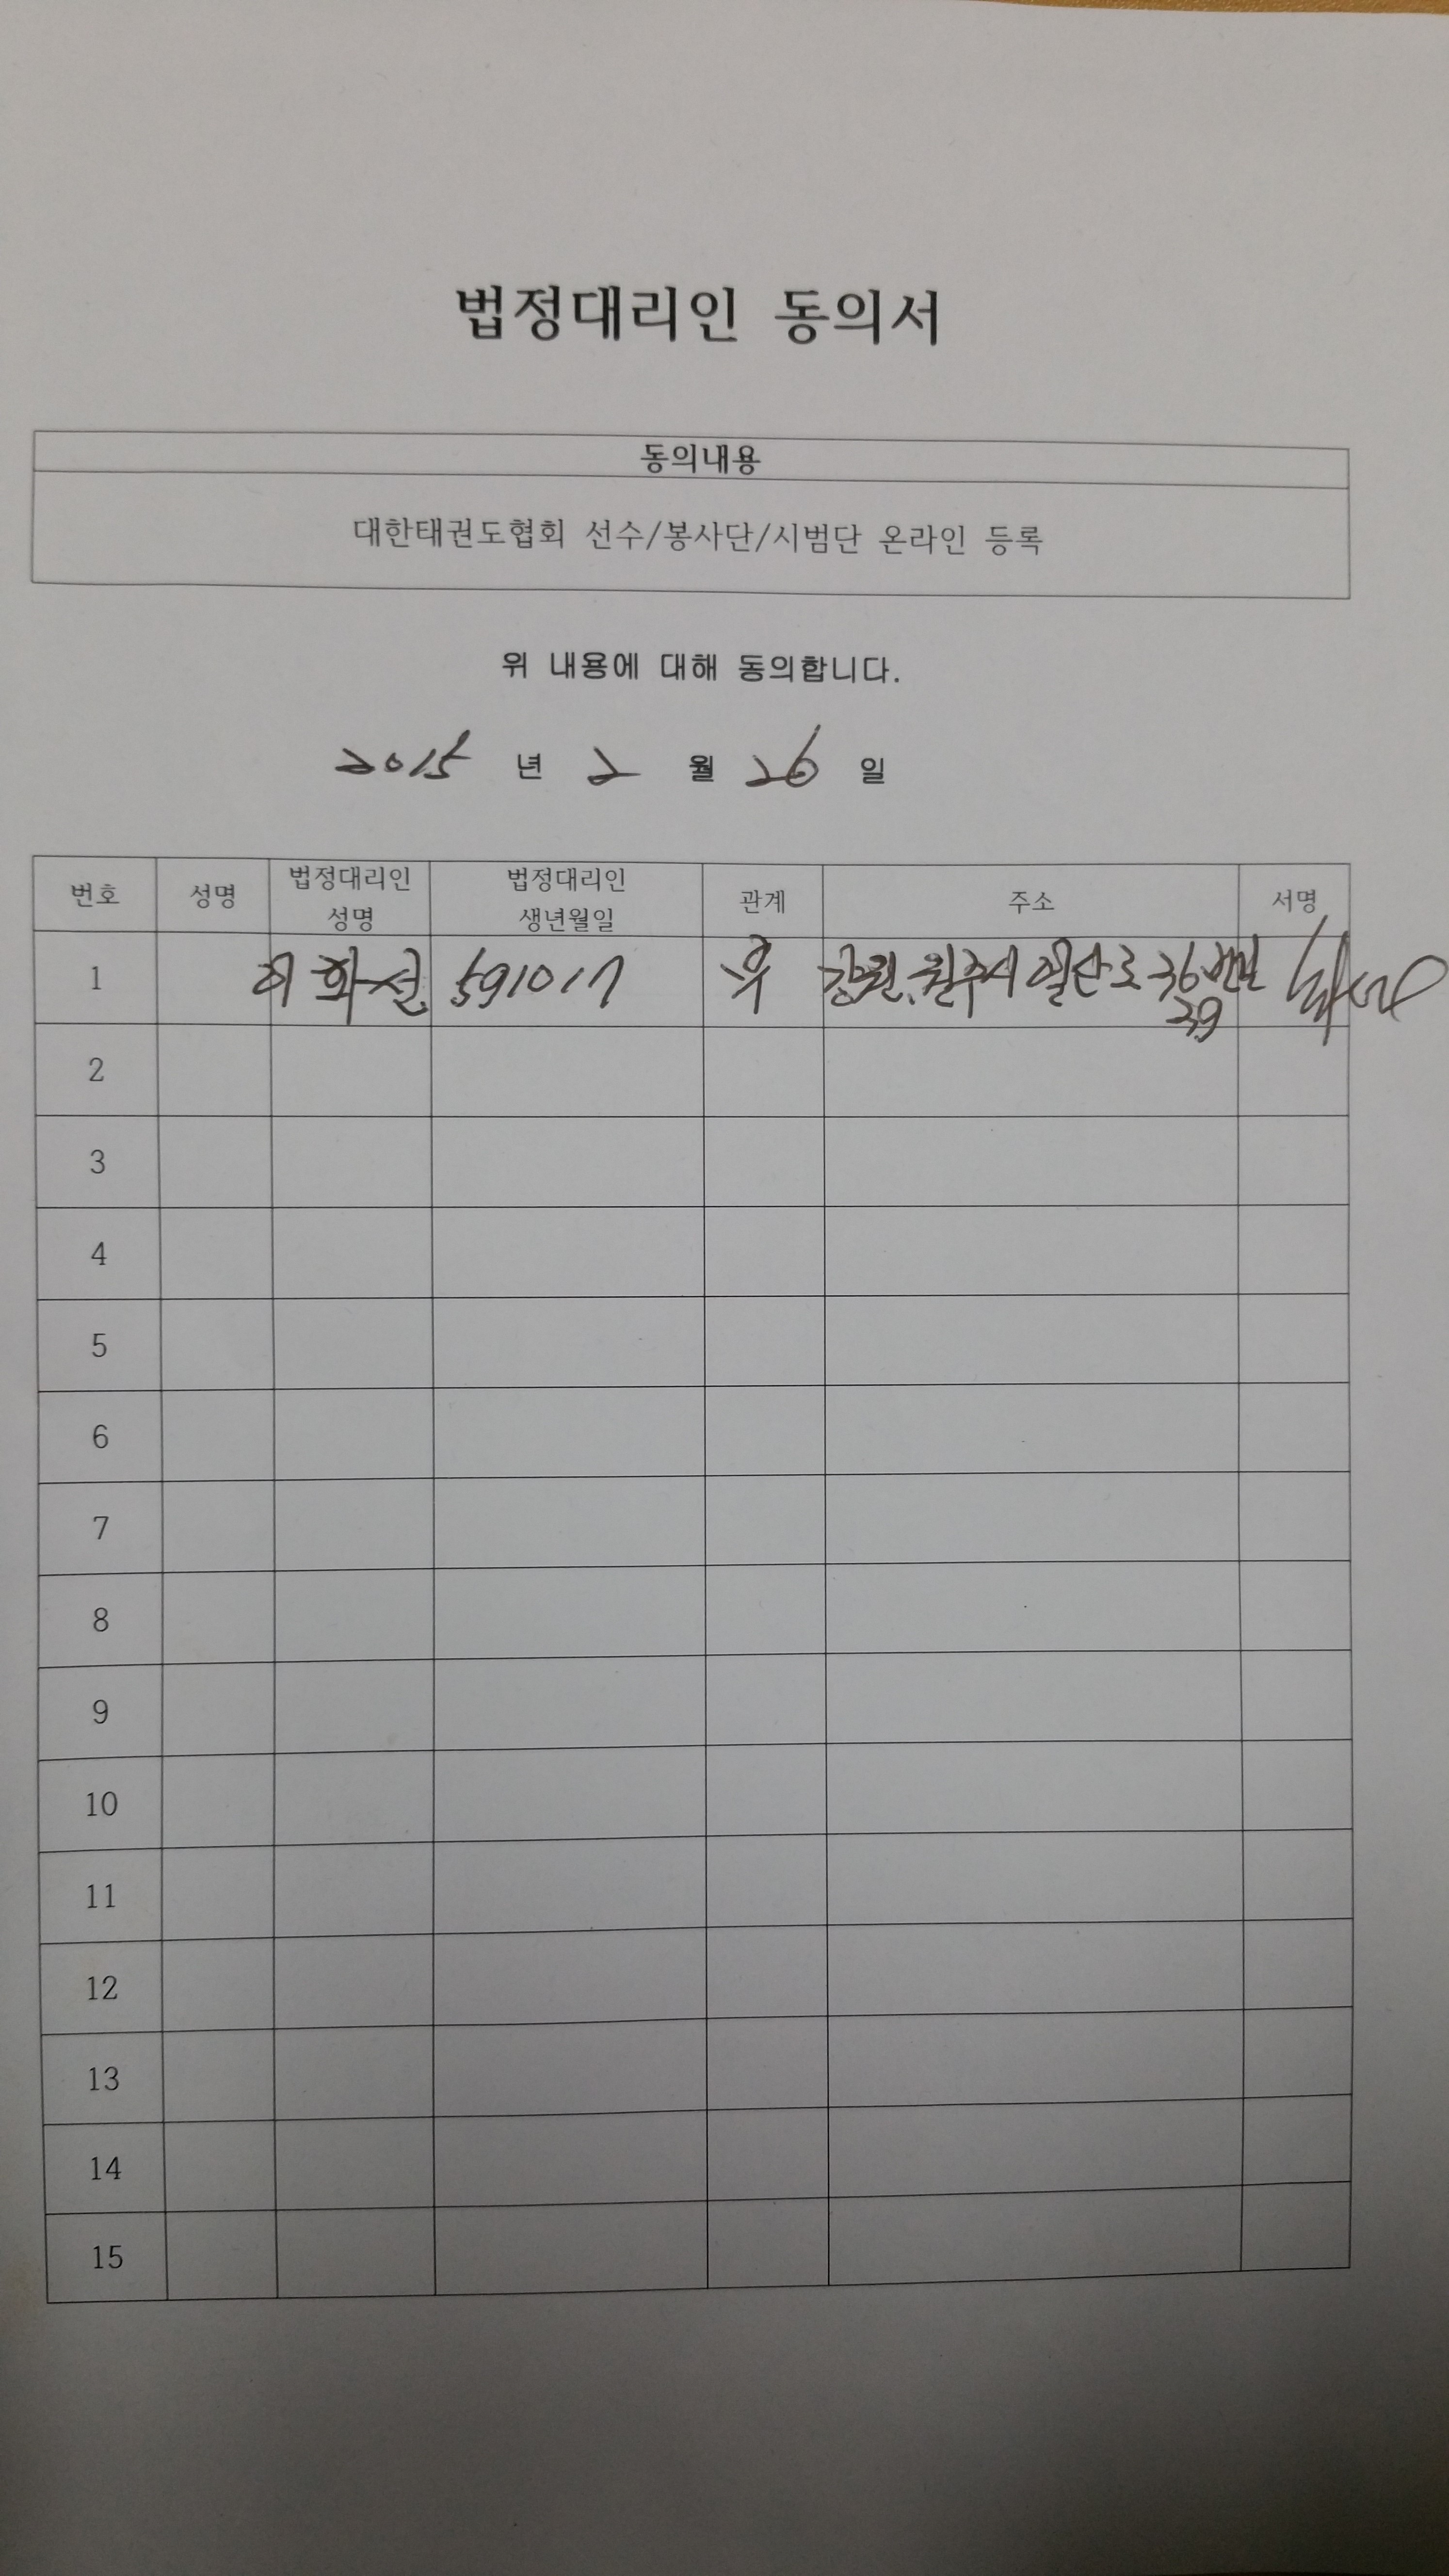 법정대리인 동의서
동의내용
대한태권도협회 선수/봉사단/시범단 온라인 등록
위 내용에 대해 동의합니다.
2015 년 2 월 26 일
번호 성명 법정대리인 성명 법정대리인 생년월일 관계 주소 서명
1 화선 591017 부 강원. 원주시 일산로 36번길
39
2
3
4
5
6
7
8
9
10
11
12
13
14
15